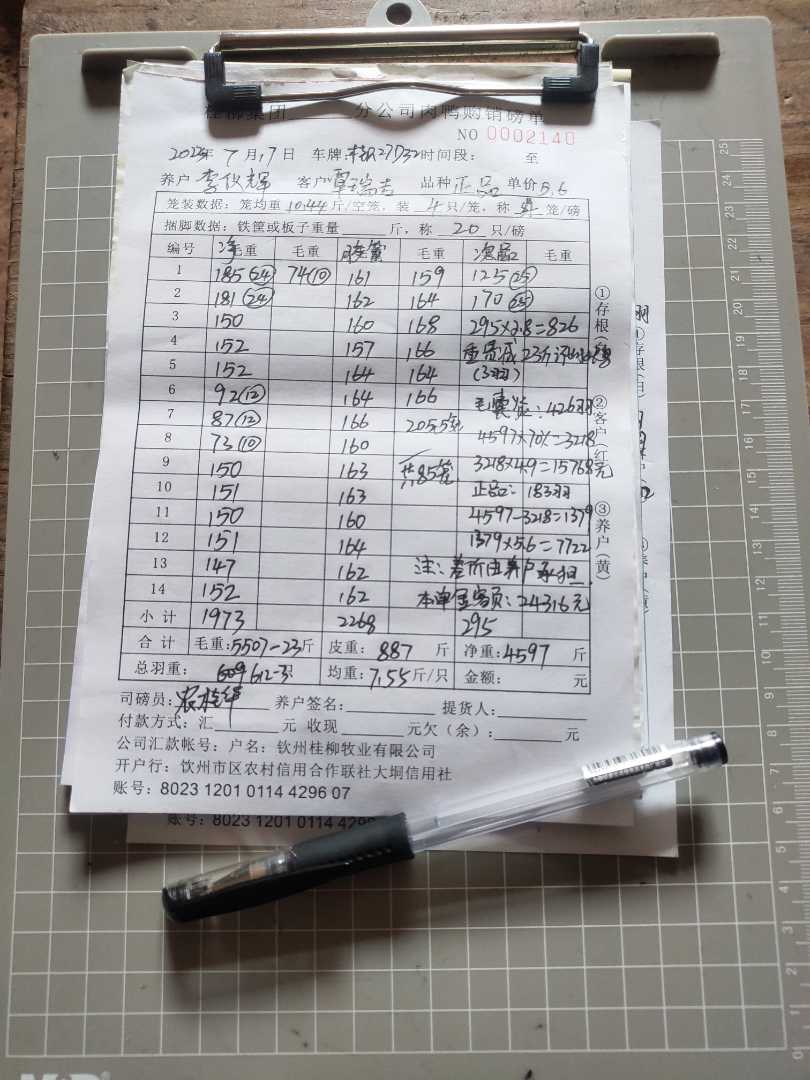 桂柳集团 分公司肉鸭购销磅单
NO 0002140
2023年 7月17日 车牌: 27D32 时间段: 至
养户 客户 覃瑞吉 品种 正品 单价 5.6
笼装数据: 笼均重 10.44 斤/空笼, 装 4 只/笼, 称 笼/磅
捆脚数据: 铁筐或板子重量 斤, 称 20 只/磅
编号 净毛重 毛重 毛重 次品 毛重
1 185(24) 74(10) 161 159 125(25)
2 181(24) 162 164 170(25)
3 150 160 168 295×2.8=826
4 152 157 166 重量减23斤
5 152 164 164 (3羽)
6 92(12) 164 166 毛囊炎: 426羽
7 87(12) 166 2055 4597×70%=3218
8 73(10) 160
9 150 163 共85笼 3218×4.9=15768元
10 151 163 正品: 183羽
11 150 160 4597-3218=1379
12 151 164 1379×5.6=7722
13 147 162 注: 差价由养户承担
14 152 162 本单金额: 24316元
小计 1973 2268 295
合计 毛重: 5507-23斤 皮重: 887 斤 净重: 4597 斤
总羽重: 609 612-3 均重: 7.55斤/只 金额: 元
司磅员: 养户签名: 提货人:
付款方式: 汇 元 收现 元欠(余): 元
公司汇款帐号: 户名: 钦州桂柳牧业有限公司
开户行: 钦州市区农村信用合作联社大垌信用社
账号: 8023 1201 0114 4296 07
①存根(白) ②客户(红) ③养户(黄)
账号: 8023 1201 0114 4296